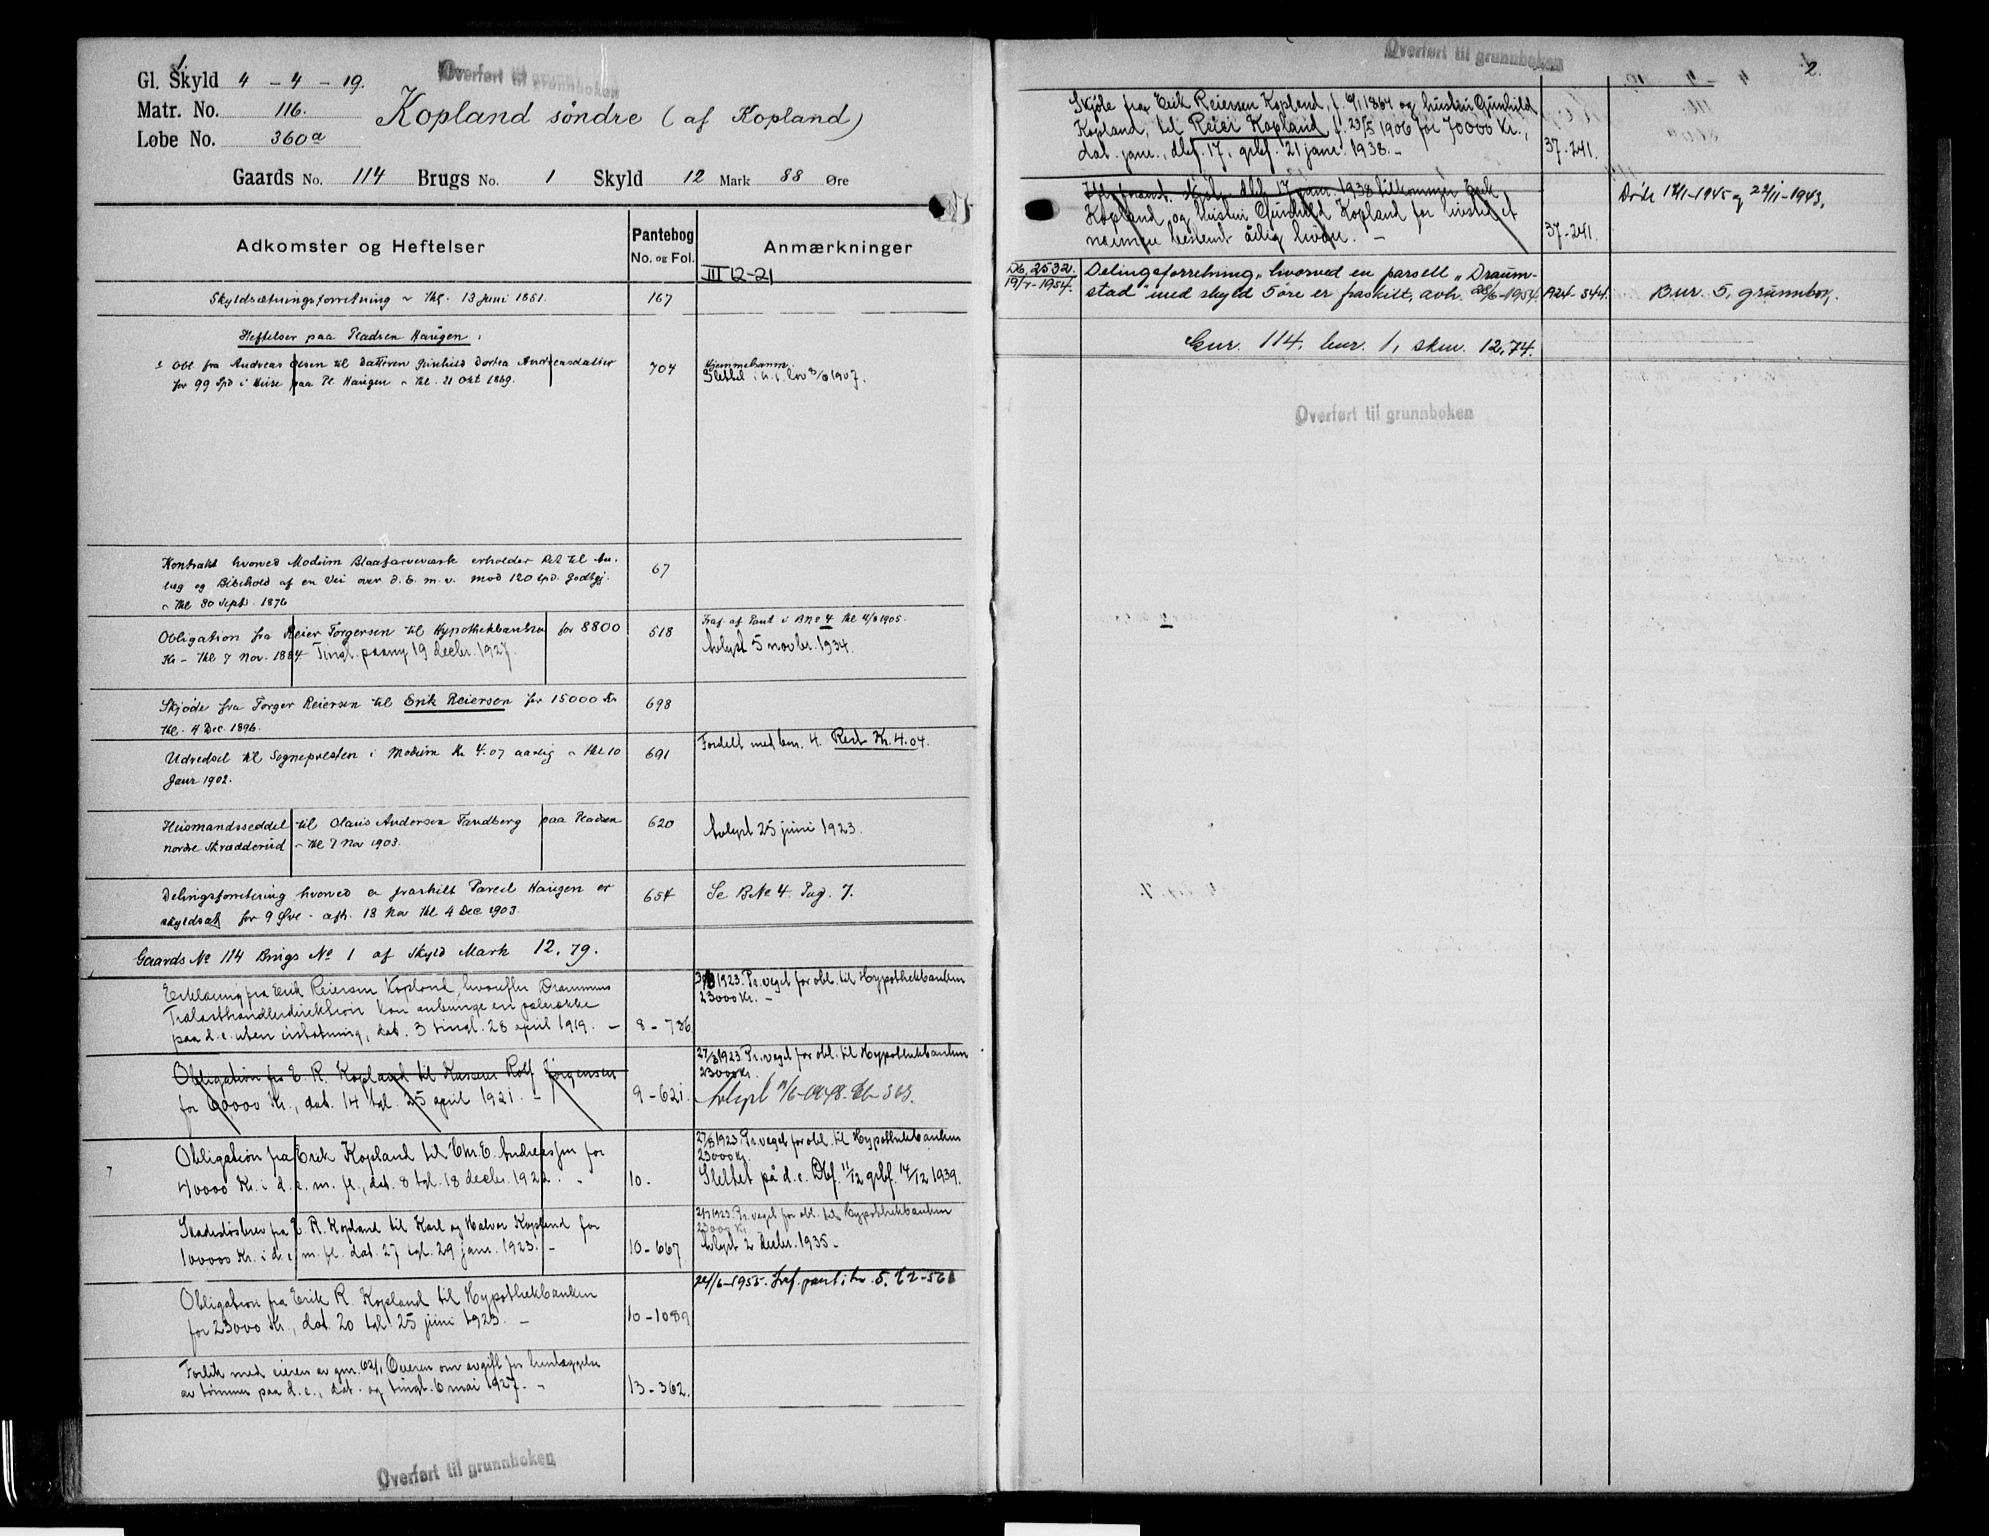 1.
Overført til grunnboken
Gl. Skyld 4 - 4 - 19.
Matr. No. 116.
Løbe No. 360a
Kopland söndre (af Kopland)
Gaards No. 114 Brugs No. 1 Skyld 12 Mark 88 Øre
Adkomster og Heftelser
Pantebog
No. og Fol.
Anmærkninger
III 12-21
Skyldsætningsforretning ~ thl. 13 Juni 1851.
167
Heftelser paa Pladsen Haugen:
Obl fra Andreas Olsen til Datteren Gunhild Dortea Andreasdatter
for 99 Spd i Huse paa Pl. Haugen ~ thl. 21 Okt 1869.
704
Hjemmelsanm.
Slettet i h. t. lov 1907.
Kontrakt hvorved Modum Blaafarveværk erholder Ret til An-
læg og Bibehold af en Vei over d. E. m. v. mod 120 Spd. Godtgj.
~ thl 30 Sept. 1876
67
Obligation fra Reier Torgersen til Hypothekbanken for 8800
Kr - thl 7 Nov. 1884 Tingl. paany 19 decbr. 1927.
518
Fraf. af Pant i BNo 4 thl 1905.
Avlyst 5 novbr. 1934.
Skjøde fra Torger Reiersen til Erik Reiersen for 15000 Kr
thl. 4 Dec. 1896.
698
Udredsel til Sognepresten i Modum Kr 4.07 aarlig ~ thl 10
Janr 1902.
691
Fordelt med bnr. 4. Rest Kr. 4.04.
Husmandsseddel til Olaus Andersen Tandberg paa Pladsen
nordre Skrædderud ~ thl 7 Nov 1903.
620
Avlyst 25 juni 1923.
Delingsforretning hvorved en fraskilt Parcel Haugen er
skyldsat for 9 Øre - afh. 18 Nov thl 4 Dec 1903.
654
Se BNo 4 Pag. 7.
Gaards No 114 Brugs No 1 af Skyld Mark 12.79.
Erklæring fra Erik Reiersen Kopland, hvorefter Drammens
Trælasthandlerdirektion kan anbringe en pælerække
paa d. e. uten erstatning, dat. 3 tingl. 28 april 1919. -
8 - 736
1923. Pr. veget for obl. til Hypothekbanken
23000 Kr. -
Obligation fra E. R. Kopland til Kasserer Rolf Jörgensen
for 60000 Kr., dat. 14 tgl. 25 april 1921. -
9 - 621.
27/8 1923. Pr. veget for obl. til Hypothekbanken
23000 Kr.
Obligation fra Erik Kopland til Chr. E. Andreassen for
40000 Kr. i d. e. m. fl., dat. 8 tgl. 18 decbr. 1922. -
10.
27/8 1923. Pr. veget for obl. til Hypothekbanken
23000 Kr.
Slettet på d. e. Dbf. 11/12 grbf. 14/12 1939.
Skadeslösbrev fra E. R. Kopland til Karl og Halvor Kopland for
10000 Kr. i d. e. m. fl. dat. 27 tgl. 29 janr. 1923. -
10 - 667
1923. Pr. veget for obl. til Hypothekbanken
23000 Kr.
Avlyst 2 decbr. 1935 -
Obligation fra Erik R. Kopland til Hypothekbanken
for 23000 Kr., dat. 20 tgl 25 juni 1923. -
10 - 1089
22/6 - 1955. Fraf. pant i bnr. 5.
Forlik med eieren av gnr. 62/1 Överen om avgift for henlæggelse
av tömmer paa d. e., dat. og tingl. 6 mai 1927. -
13 - 362.
Overført til grunnboken
Overført til grunnboken
2.
Skjöte fra Erik Reiersen Kopland, f. 1864 og hustru Gunhild
Kopland, til Reier Kopland f. 29/5 1906 for 70000 Kr.,
dat. janr., dbf. 17, grbf. 21 janr. 1938. -
37 - 241.
Ifg. nevnt skjöte dbf. 17 janr. 1938 tilkommer Erik
Kopland og hustru Gunhild Kopland for livstid et
nærmere bestemt årlig livöre. -
37 - 241.
Döde 1945 og 22/11 - 1943.
Db. 2532.
19/7 - 1954.
Delingsforretning, hvorved en parsell „Draum-
stad" med skyld 5 øre er fraskilt, avh. 28/6 - 1954.
A24 - 344.
Bnr. 5, grunnbok.
Gnr. 114, bnr. 1, skm. 12,74.
Overført til grunnboken